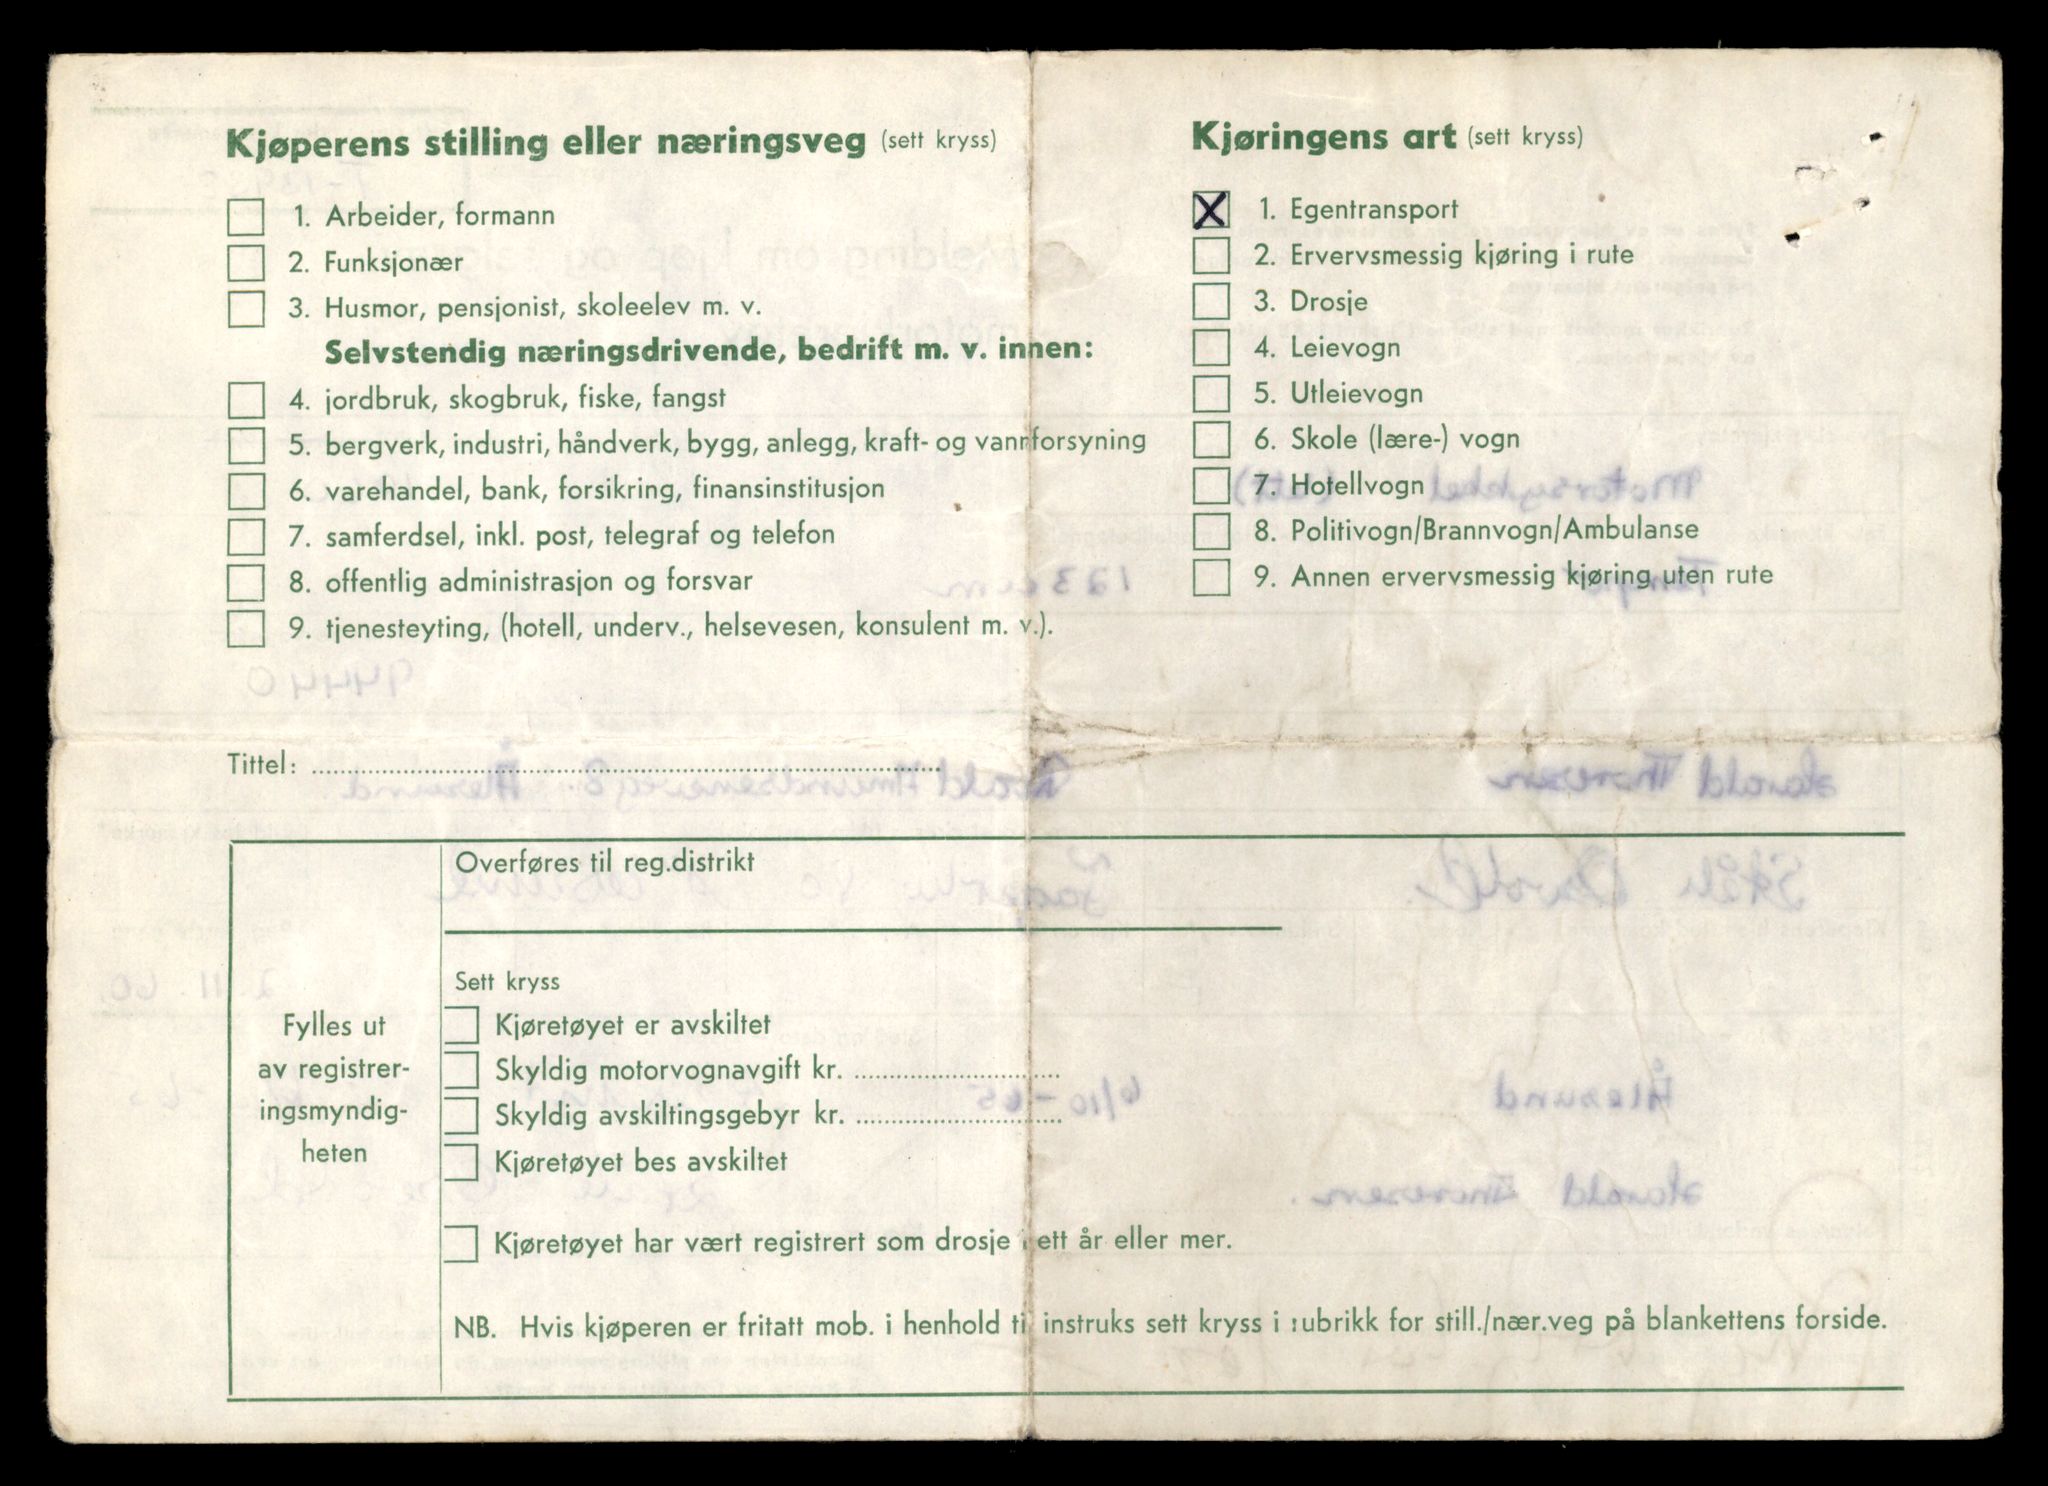 Kjøperens stilling eller næringsveg (sett kryss)
1. Arbeider, formann
2. Funksjonær
3. Husmor, pensjonist, skoleelev m. v.
Selvstendig næringsdrivende, bedrift m. v. innen:
4. jordbruk, skogbruk, fiske, fangst
5. bergverk, industri, håndverk, bygg, anlegg, kraft- og vannforsyning
6. varehandel, bank, forsikring, finansinstitusjon
7. samferdsel, inkl. post, telegraf og telefon
8. offentlig administrasjon og forsvar
9. tjenesteyting, (hotell, underv., helsevesen, konsulent m. v.).
Kjøringens art (sett kryss)
X 1. Egentransport
2. Ervervsmessig kjøring i rute
3. Drosje
4. Leievogn
5. Utleievogn
6. Skole (lære-) vogn
7. Hotellvogn
8. Politivogn/Brannvogn/Ambulanse
9. Annen ervervsmessig kjøring uten rute
Tittel:
Fylles ut
av registrer-
ingsmyndig-
heten
Overføres til reg.distrikt
Sett kryss
Kjøretøyet er avskiltet
Skyldig motorvognavgift kr.
Skyldig avskiltingsgebyr kr.
Kjøretøyet bes avskiltet
Kjøretøyet har vært registrert som drosje i ett år eller mer.
NB. Hvis kjøperen er fritatt mob. i henhold til instruks sett kryss i rubrikk for still./nær.veg på blankettens forside.